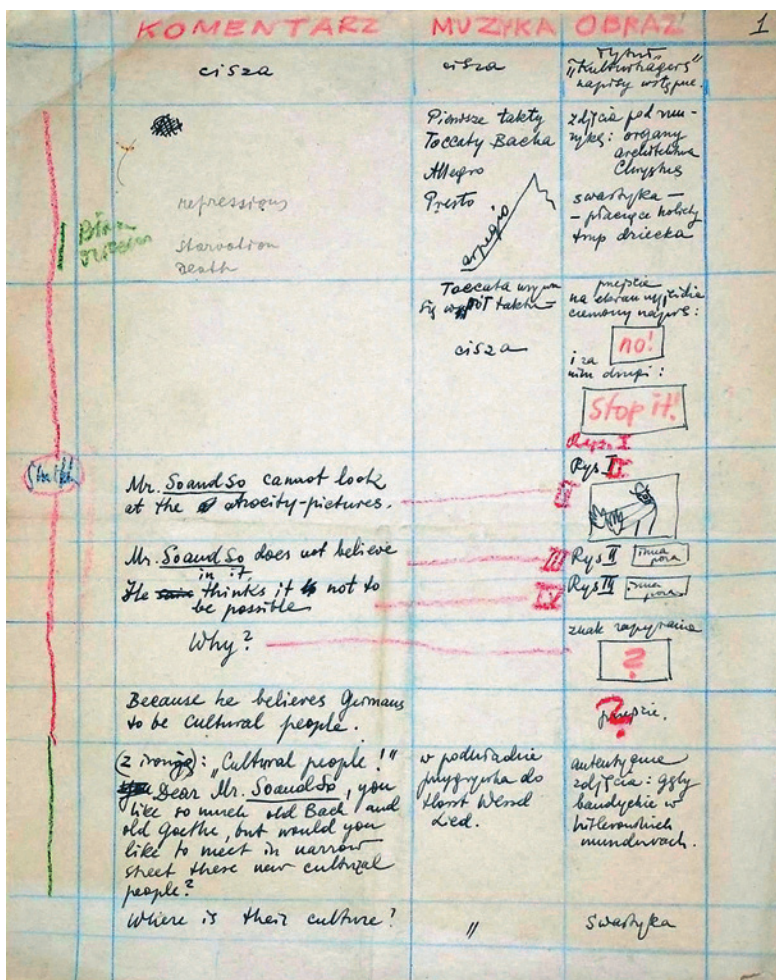 KOMENTARZ MUZYKA OBRAZ 1
cisza
cisza
Tytuł
"Kulturträgers"
napisy wstępne.
Pierwsze takty
Toccaty Bacha
Allegro
Presto
arpegio
zdjęcia pod mu-
zykę: organy
architektura
Chrystus
swastyka —
— płaczące kobiety
trup dziecka
repressions
starvation
Death
Toccata urywa
się w pół taktu —
cisza
przejście
na ekran
ciemny napis:
no!
i za
nim drugi:
Stop it!
Rys. I
Mr. Soandso cannot look
at the atrocity-pictures.
II
Rys II
Mr. Soandso does not believe
in it.
III
Rys II
inna
poza
He thinks it not to
be possible
IV
Rys III
inna
poza
Why?
znak zapytania
?
Because he believes Germans
to be cultural people.
?
przejście.
(z ironją): "Cultural people!"
Dear Mr. Soandso, you
like so much old Bach and
old Goethe, but would you
like to meet in narrow
street these new cultural
people?
w podkładzie
przygrywka do
Horst Wessel
Lied.
autentyczne
zdjęcia: gęby
bandyckie w
hitlerowskich
mundurach.
Where is their culture?
"
Swastyka